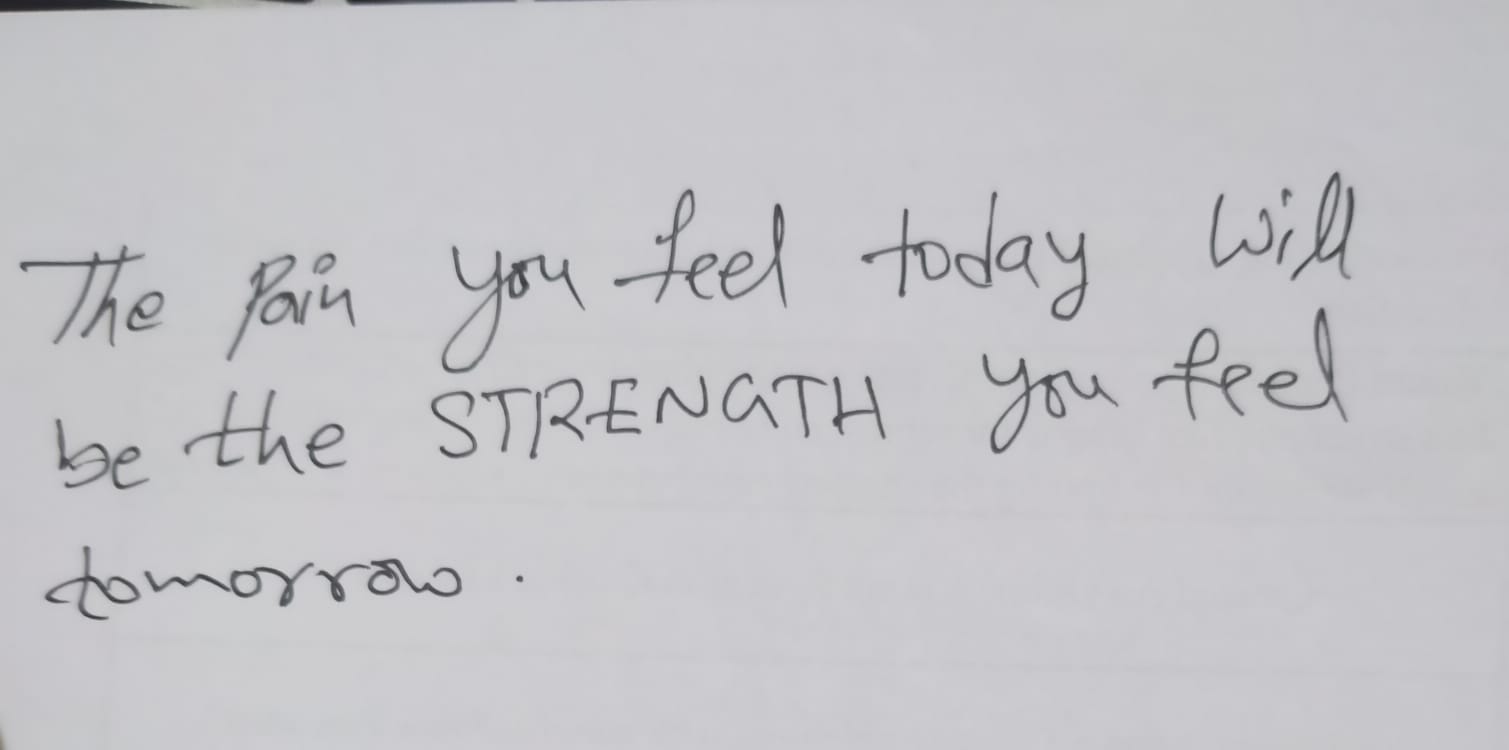 The Pain you feel today will
be the STRENGTH you feel
tomorrow.